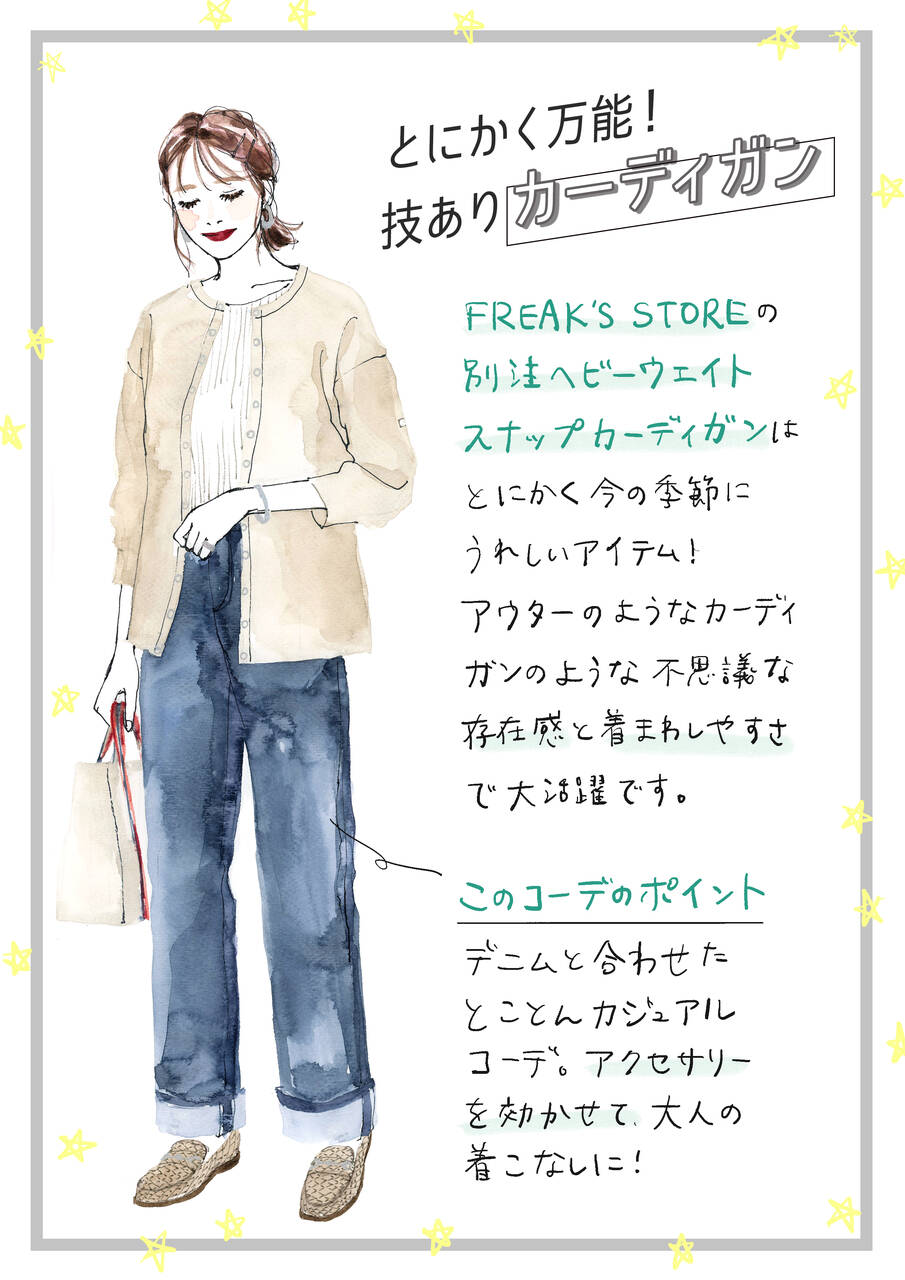 とにかく万能！
技ありカーディガン
FREAK'S STOREの
別注ヘビーウェイト
スナップカーディガンは
とにかく今の季節に
うれしいアイテム！
アウターのようなカーディ
ガンのような不思議な
存在感と着まわしやすさ
で大活躍です。
このコーデのポイント
デニムと合わせた
とことんカジュアル
コーデ。アクセサリー
を効かせて、大人の
着こなしに！